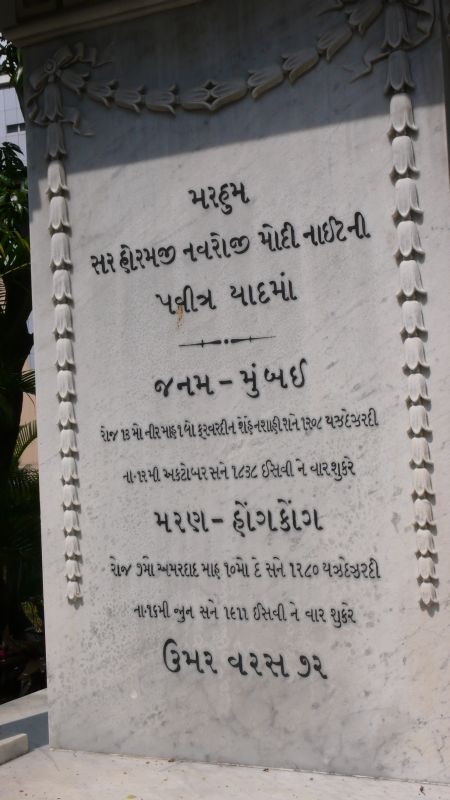 મરહુમ
સર હોરમજી નવરોજી મોદી નાઈટની
પવીત્ર યાદમાં
જનમ – મુંબઈ
રોજ ૧૩ મો તીર માહ ૧ લો ફરવરદીન શેહેનશાહી સને ૧૨૦૮ યઝદેઝરદી
તા. ૧૨મી અકટોબર સને ૧૮૩૮ ઈસવી ને વાર શુકરે
મરણ – હોંગકોંગ
રોજ ૭મો અમરદાદ માહ ૧૦મો દે સને ૧૨૮૦ યઝદેઝરદી
તા. ૧૬મી જુન સને ૧૯૧૧ ઈસવી ને વાર શુકરે
ઉમર વરસ ૭૨